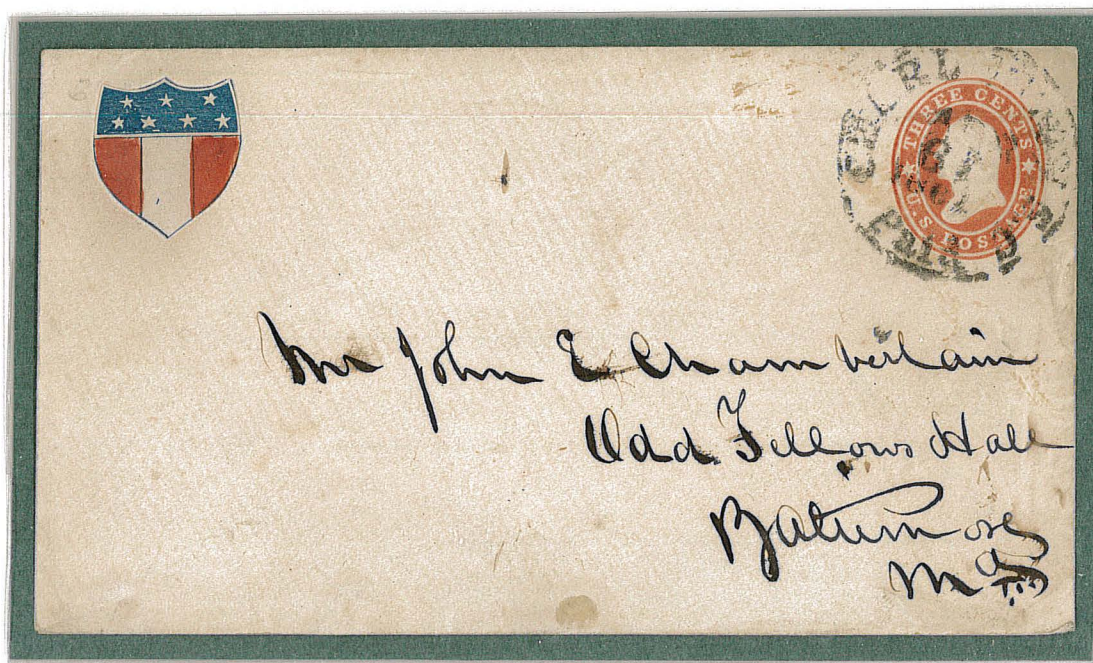 THREE CENTS
U.S. POSTAGE
Paid
Mr John E Chamberlain
Odd Fellows Hall
Baltimore
Md